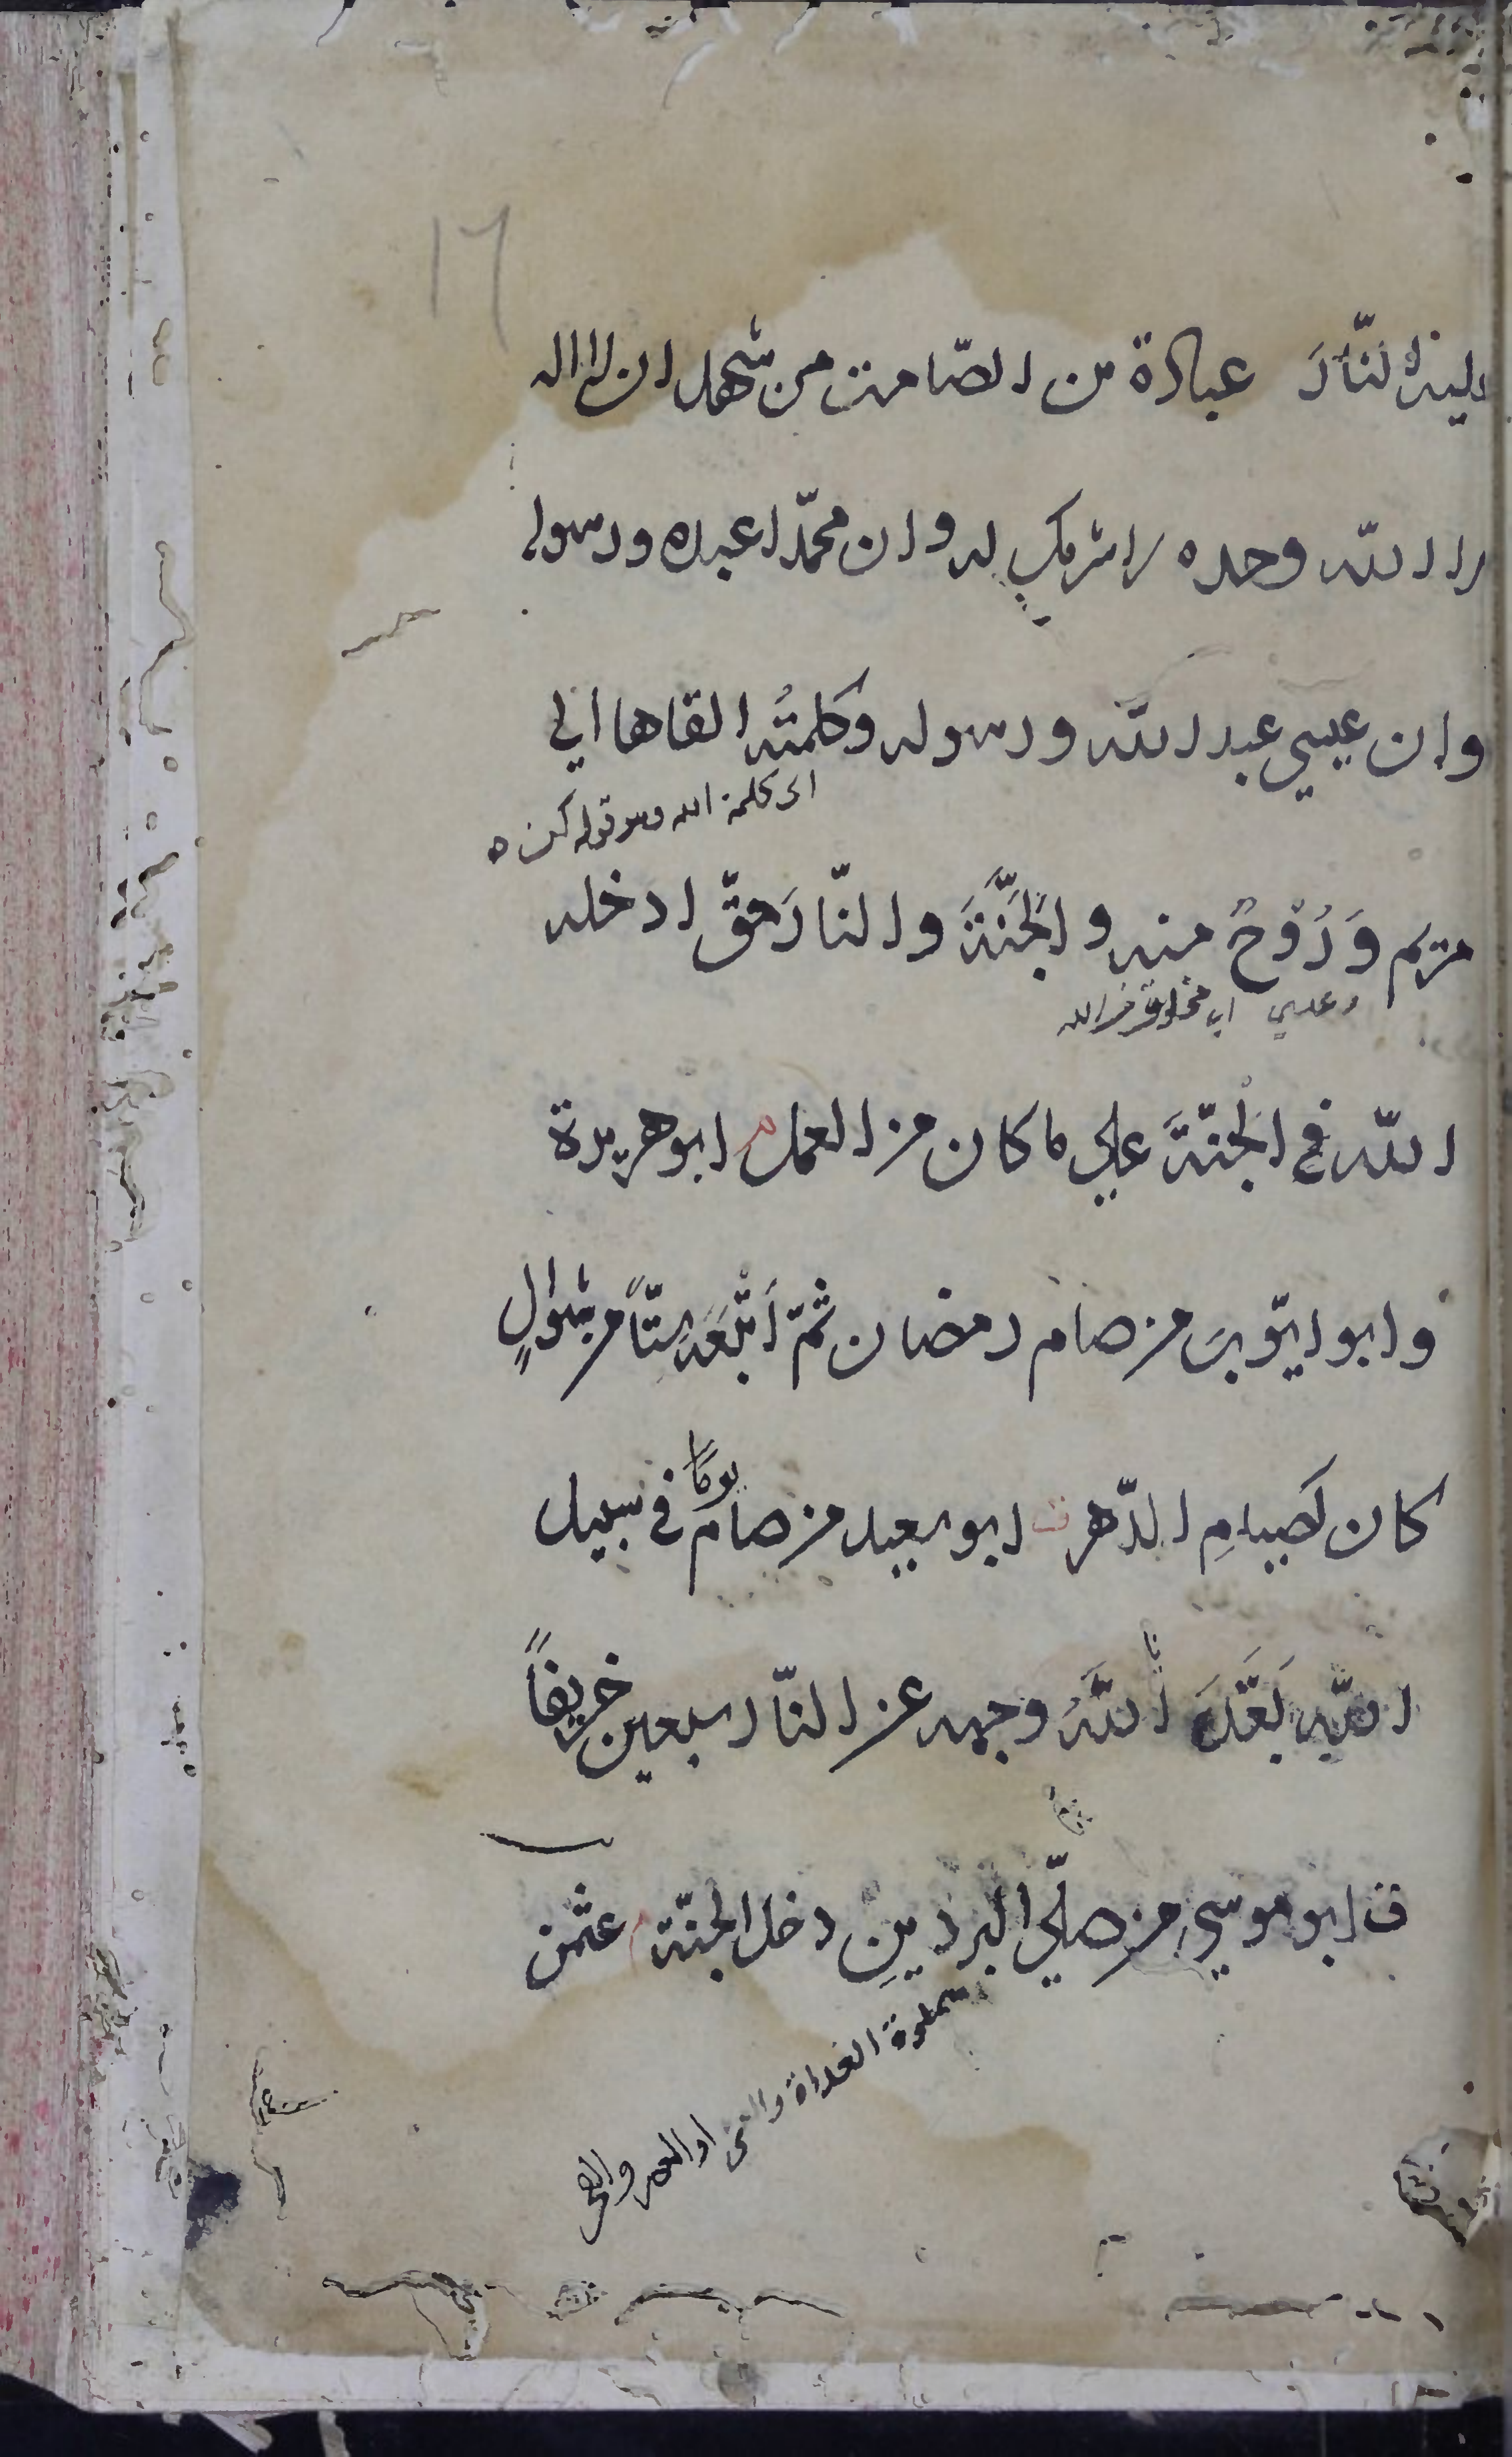 ١٦
عليه النّارَ عبادة بن الصّامت من شهد ان لا اله
الا الله وحده لا شريك له وان محمّدا عبده ورسوله
وان عيسي عبد الله ورسوله وكلمتُه القاها الي
اى كلمة الله وهو قوله كن ه
مريم وَرُوْحٌ منه والجَنَّةَ والنّارَ حقّ ادخله
اى مخلوق من الله
الله في الجنّةَ علي ما كان من العمل م ابو هريرة
وابو ايّوبَ من صام رمضان ثمّ أتْبَعَه سِتّاً من شوالٍ
كان كَصِيامِ الدّهر ق ابو سعيد من صام يومًا في سبيل
الله بَعَّدَ اللهُ وجهه عن النّار سبعين خريفاً
ق ابو موسي من صلّي البردينِ دخل الجنّة م عثمن
صلوة الغداة والعشى او العصر والفجر